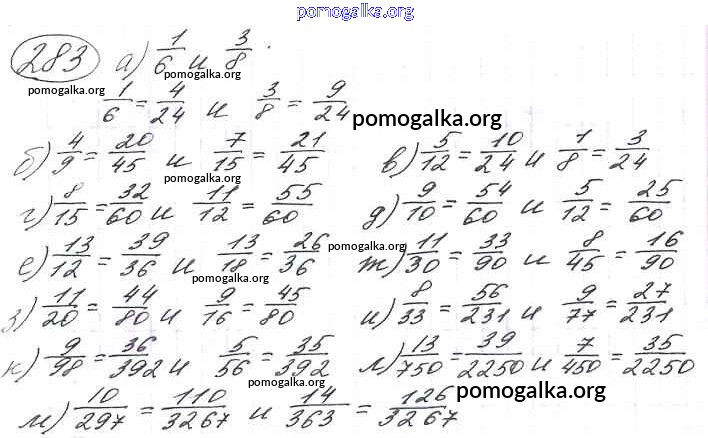 pomogalka.org
283 а) 1/6 и 3/8.
pomogalka.org pomogalka.org
1/6 = 4/24 и 3/8 = 9/24
pomogalka.org
б) 4/9 = 20/45 и 7/15 = 21/45 в) 5/12 = 10/24 и 1/8 = 3/24
pomogalka.org
г) 8/15 = 32/60 и 11/12 = 55/60 д) 9/10 = 54/60 и 5/12 = 25/60
pomogalka.org
е) 13/12 = 39/36 и 13/18 = 26/36 ж) 11/30 = 33/90 и 8/45 = 16/90
pomogalka.org
з) 11/20 = 44/80 и 9/16 = 45/80 и) 8/33 = 56/231 и 9/77 = 27/231
pomogalka.org
к) 9/98 = 36/392 и 5/56 = 35/392 л) 13/750 = 39/2250 и 7/450 = 35/2250
pomogalka.org
pomogalka.org
м) 10/297 = 110/3267 и 14/363 = 126/3267